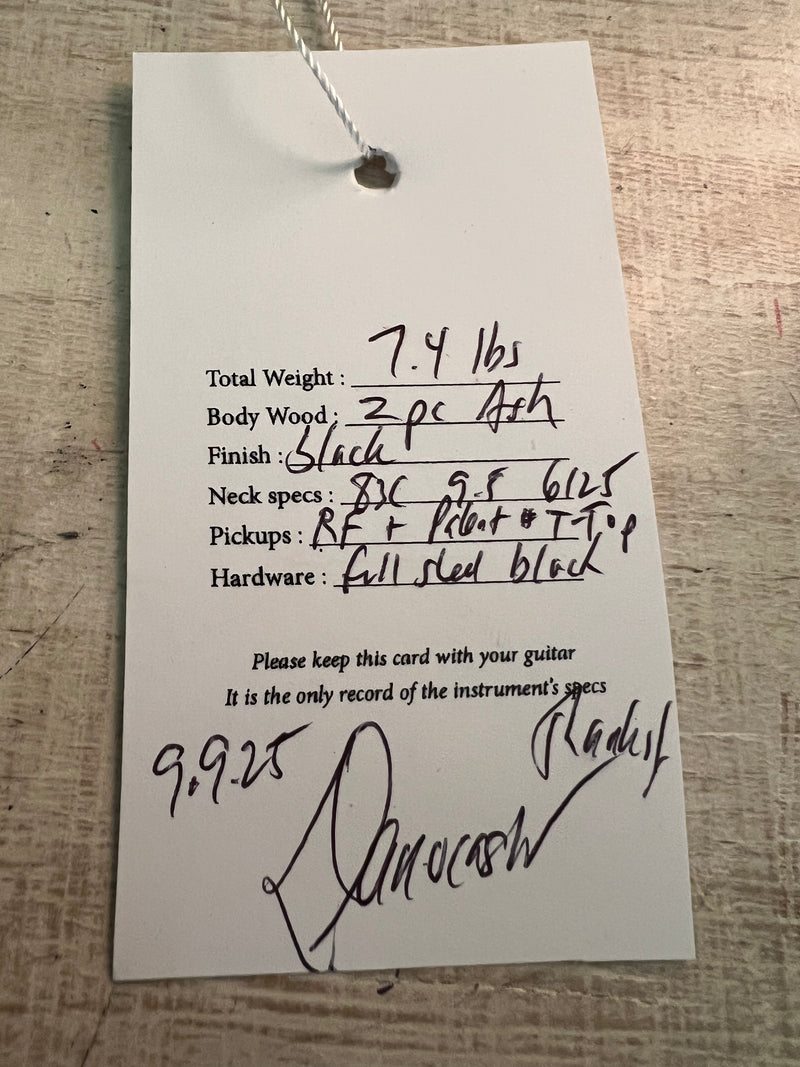 Total Weight : 7.4 lbs
Body Wood : 2 pc Ash
Finish : black
Neck specs : 83C 9.5 6125
Pickups : RF + Patent # T-Top
Hardware : full sled black
Please keep this card with your guitar
It is the only record of the instrument's specs
Thanks!
9.9.25
Danocaster